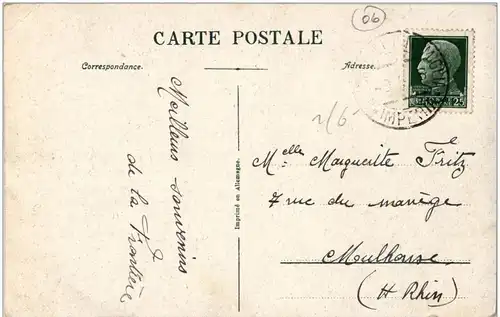 06
CARTE POSTALE
Correspondance.
Adresse.
Meilleurs souvenirs
de la Frontière
Imprimé en Allemagne.
25 25
IMPERIA
2/6
Melle Marguerite Fritz
7 rue du manège
Mulhouse
(H Rhin)